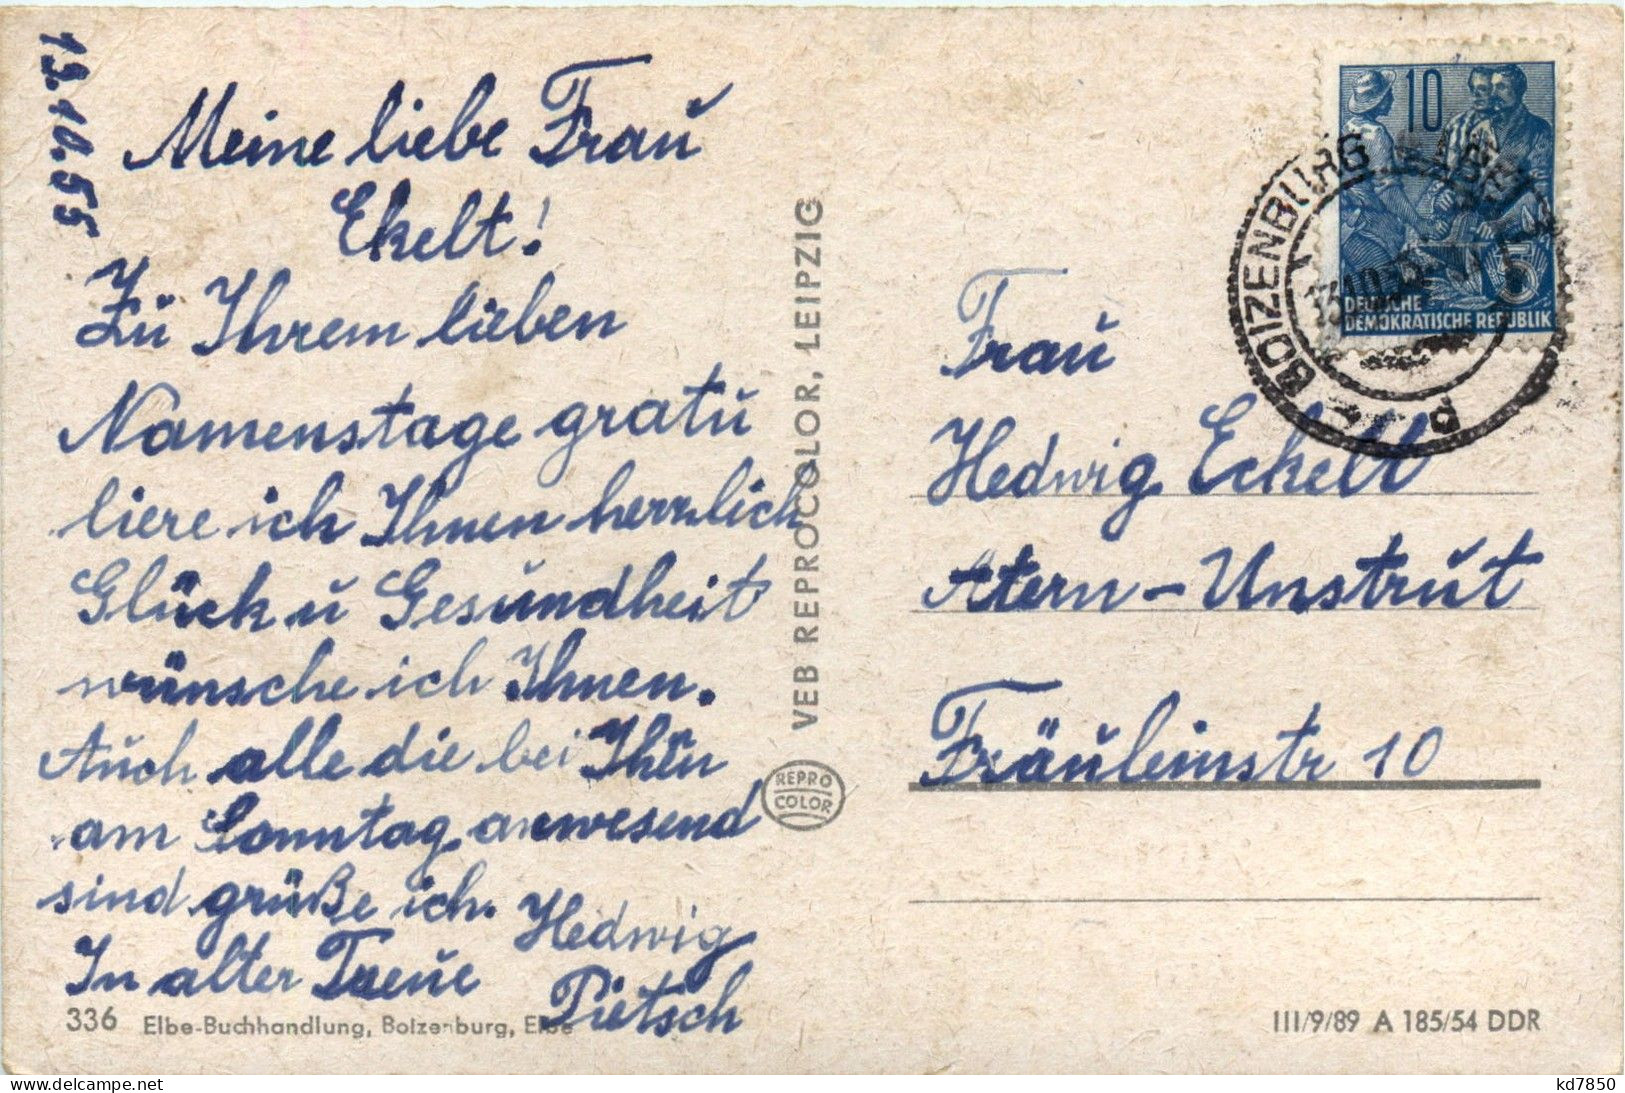 13.10.55
Meine liebe Frau
Ekelt!
Zu Ihrem lieben
Namenstage gratu
liere ich Ihnen herzlich
Glück u Gesundheit
wünsche ich Ihnen.
Auch alle die bei Ihnen
am Sonntag anwesend
sind grüße ich.
In alter Treue Hedwig
Pietsch
336 Elbe-Buchhandlung, Boizenburg, Elbe
VEB REPROCOLOR, LEIPZIG
REPRO
COLOR
10
DEUTSCHE
DEMOKRATISCHE REPUBLIK
BOIZENBURG
d
Frau
Hedwig Eckelt
Artern-Unstrut
Fräuleinstr 10
III/9/89 A 185/54 DDR
kd7850